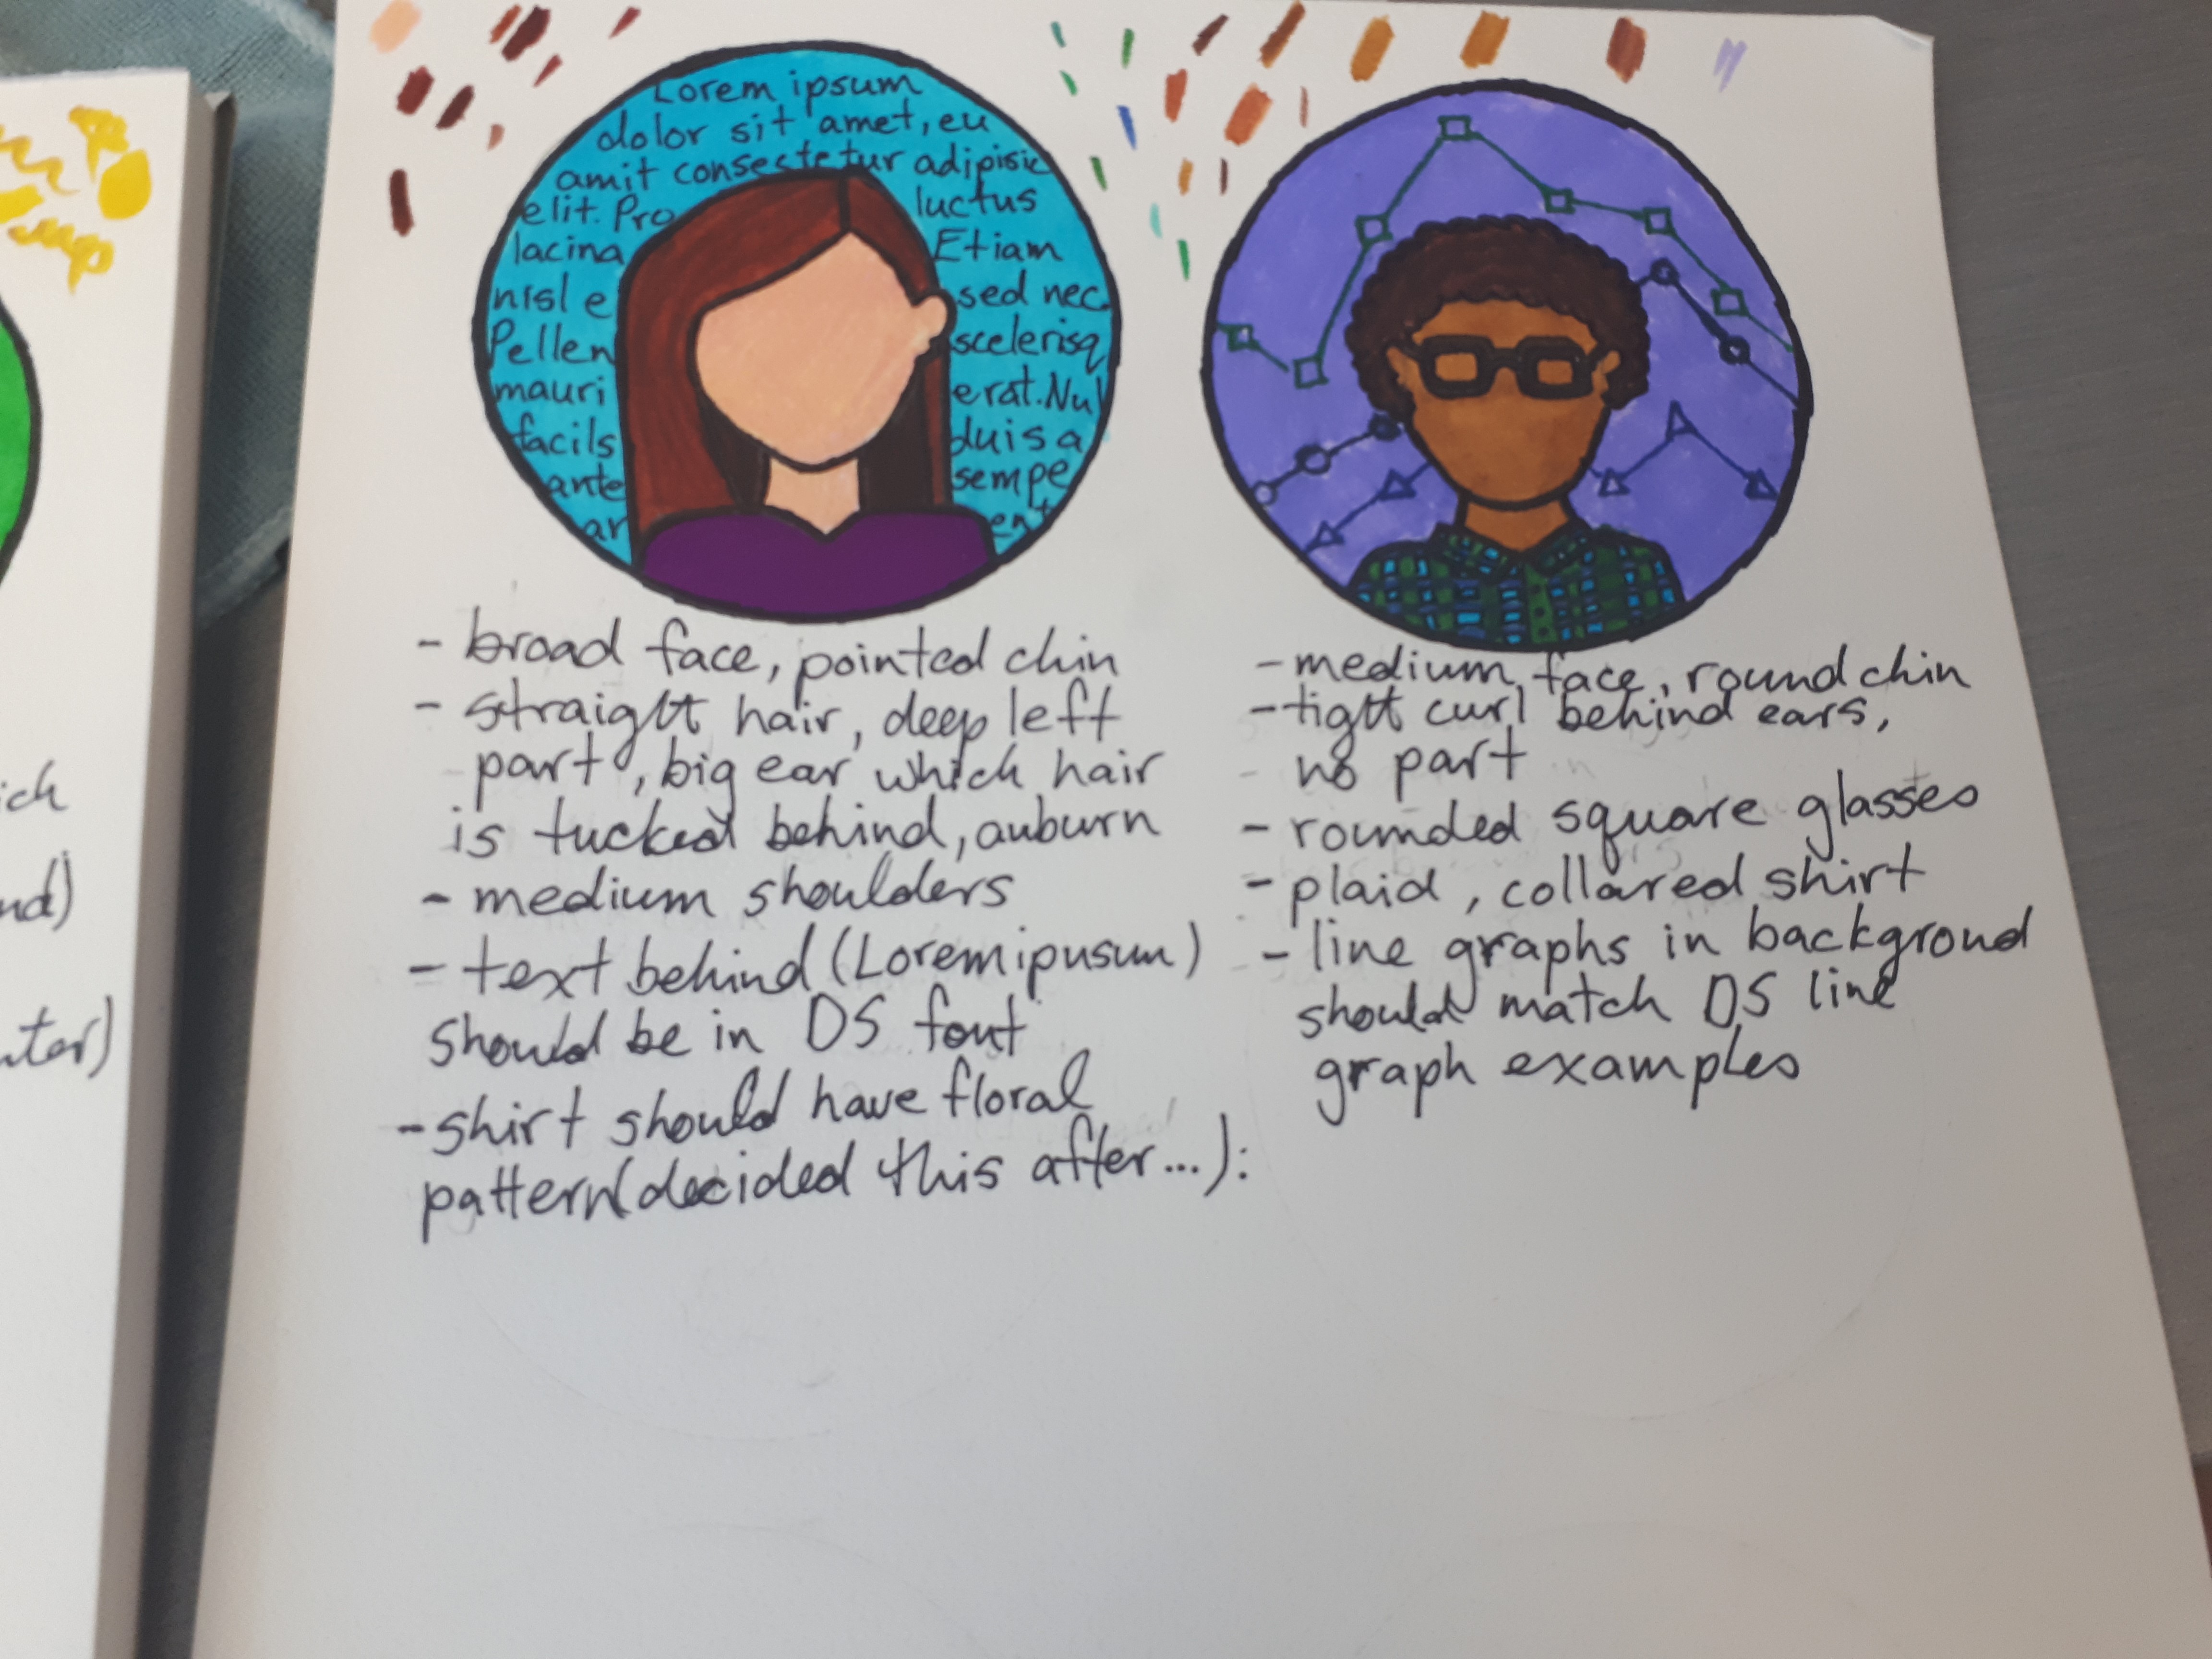 ich
nd)
nter)
Lorem ipsum
dolor sit amet, eu
amit consectetur adipisic
elit. Pro luctus
lacina Etiam
nisl e sed nec
Pellen scelerisq
mauri erat. Nul
facils duis a
ante sempe
ar ent
- broad face, pointed chin
- straight hair, deep left
part, big ear which hair
is tucked behind, auburn
- medium shoulders
- text behind (Lorem ipusum)
should be in DS font
- shirt should have floral
pattern (decided this after...):
- medium face, round chin
- tight curl behind ears,
no part
- rounded square glasses
- plaid, collared shirt
- line graphs in backgroud
should match DS line
graph examples